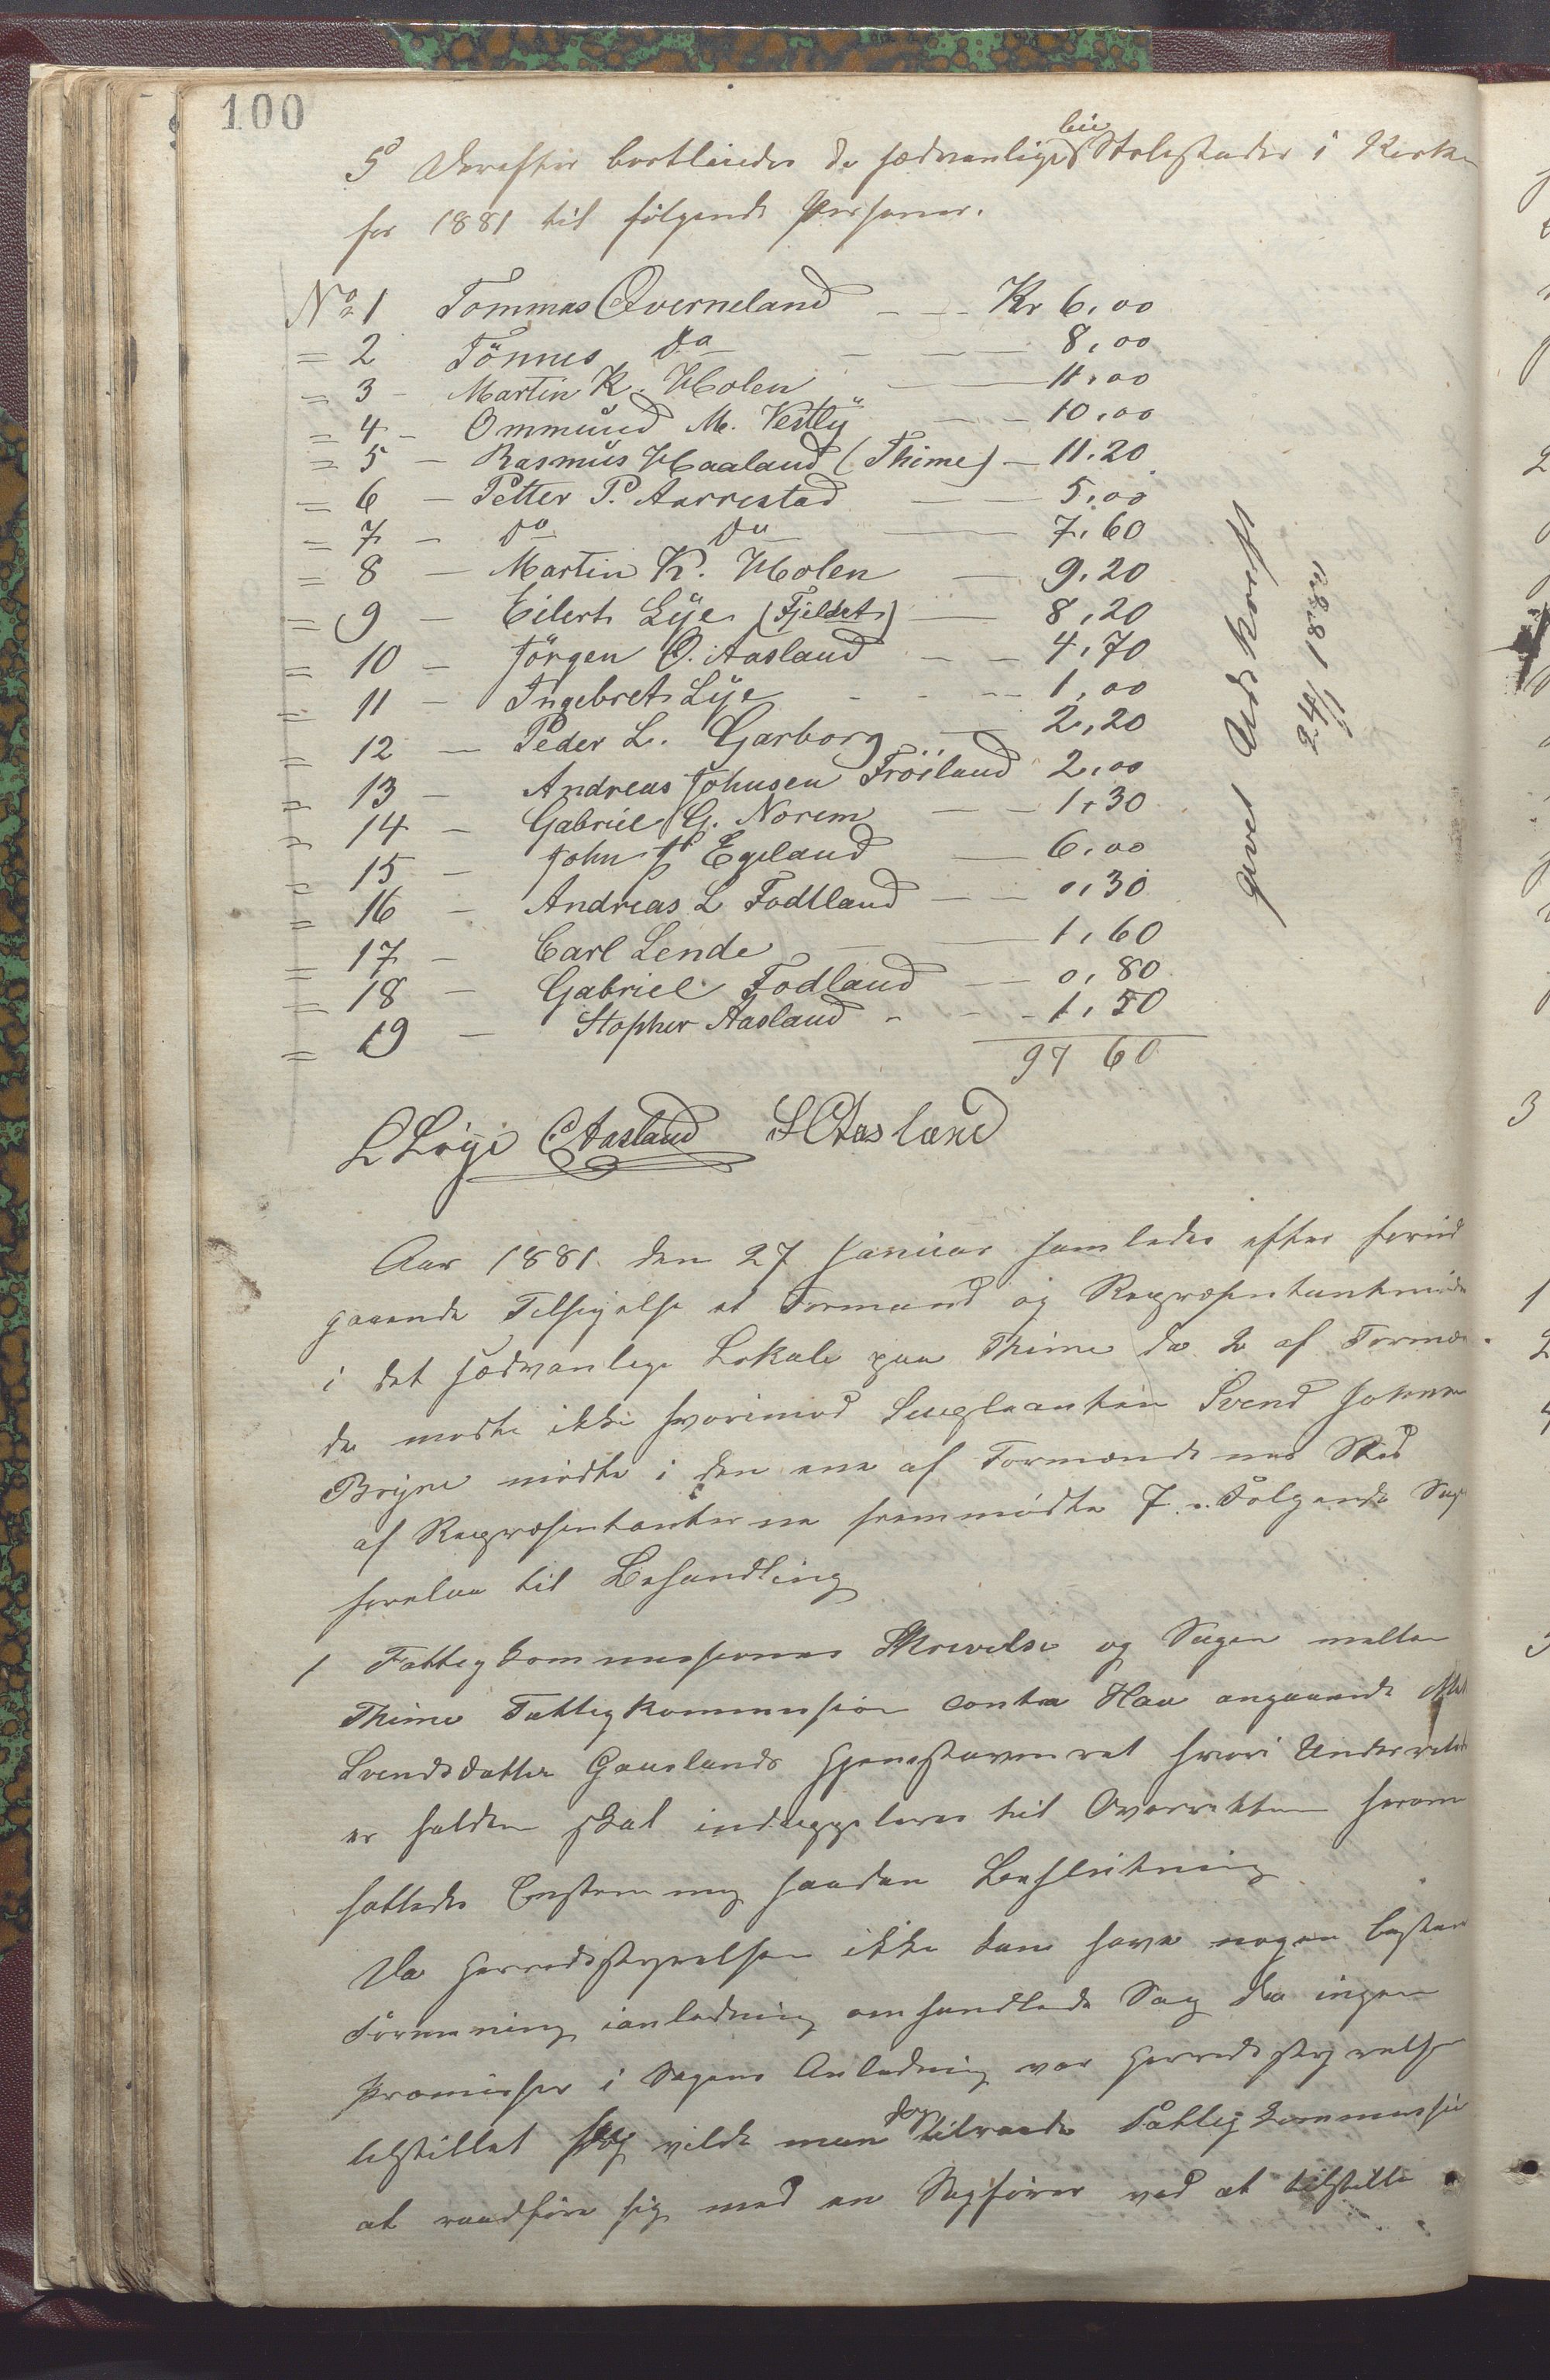 100
5 Derefter bortleiedes de sædvanlige leie Stolestader i Kirken
for 1881 til følgende Personer.
No 1 Tommas Qverneland - - - Kr 6,00
= 2 Tönnes do - - 8,00
= 3 - Martin K. Holen - 11,00
= 4 - Ommund M. Vestly - - 10,00
= 5 - Rasmus Haaland (Thime) - 11,20
= 6 - Petter P. Aarrestad - 5,00
= 7 - do do - 7,60
= 8 - Martin K. Holen - 9,20
= 9 - Eilert Lye (Fjeldet) - 8,20
= 10 - Jörgen O. Aasland - - 4,70
= 11 - Ingebret Lye - - - 1,00
= 12 - Peder L. Garborg - 2,20
= 13 - Andreas Johnsen Fröiland 2,00
= 14 - Gabriel G. Norem - - 1,30
= 15 - John J. Egeland - 6,00
= 16 - Andreas L Fodtland - - 0,30
= 17 - Carl Lende - - 1,60
= 18 - Gabriel Fodland - - 0,80
= 19 - Stopher Aasland - - - 1,50
97 60
givet Udskrift
24/11 1881
L Löge C Aasland S C Aasland
Aar 1881 den 27 Januar samledes efter forud
gaaende Tilsigelse et Formand og Repræsentantmøde
i det sædvanlige Lokale paa Thime da 2 af Formæn
de mødte ikke hvorimod Supleanten Svend Johnsen
Bryne mødte i den ene af Formændenes Sted
af Repræsentanterne fremmødte 7. Følgende Sager
forelaa til Behandling
1 Fattigkommissionens Skrivelse og Sagen mellem
Thime Fattigkommission contra Haa angaaende
Svendsdatter Gauslands Hjemstavnsret hvori Underretsdom
er falden skal indappeleres til Overretten herom
fattedes Enstemmig saadan Beslutning
Da Herredsstyrelsen ikke kan have nogen bestem
Formening ianledning omhandlede Sag da ingen
Præmisser i Sagens Anledning var Herredsstyrelsen
tilstillet vilde man dog tilraade Fattigkommission
at raadføre sig med en Sagfører ved at tilstille